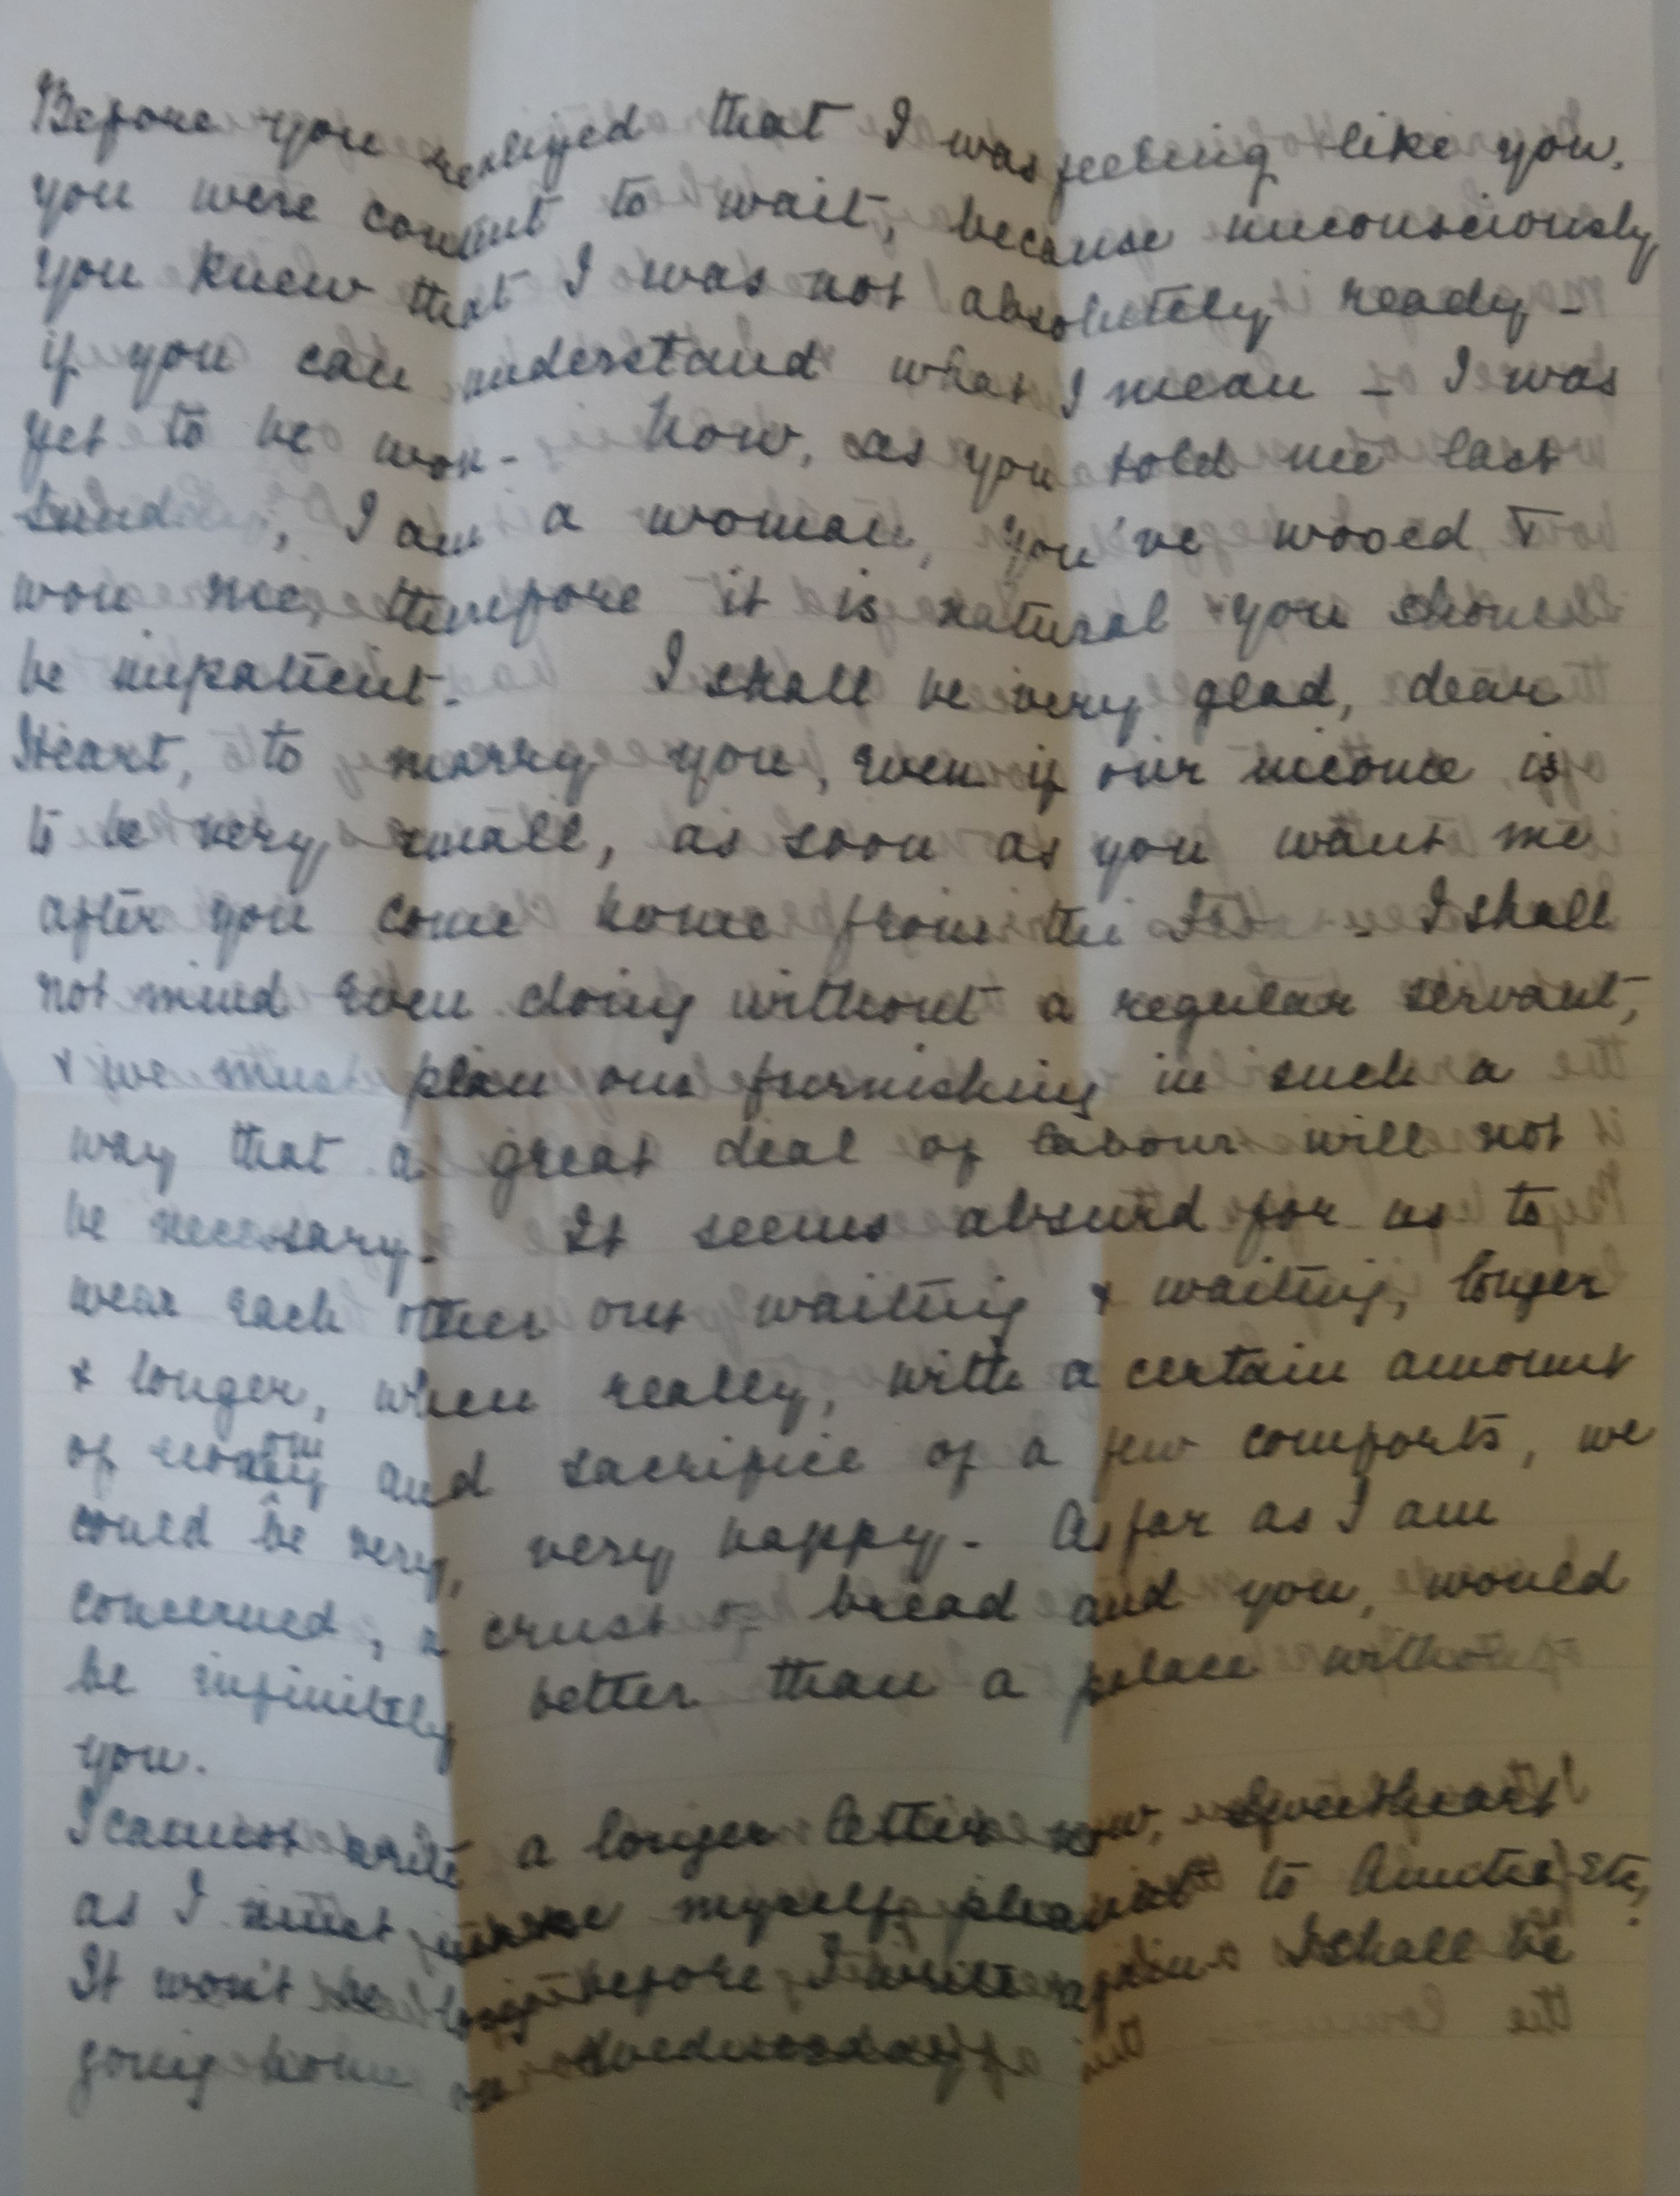 Before you realized that I was feeling like you,
you were content to wait, because unconsciously
you knew that I was not absolutely ready –
if you can understand what I mean – I was
yet to be won. Now, as you told me last
, I am a woman, you've wooed &
won me, therefore it is natural you should
be impatient. I shall be very glad, dear
Heart, to marry you, even if our income is
to be very small, as soon as you want me
after you come home from the – I shall
not mind even doing without a regular servant,
& we must plan our furnishing in such a
way that a great deal of labour will not
be necessary. It seems absurd for us to
wear each other out waiting & waiting, longer
& longer, when really, with a certain amount
of and sacrifice of a few comforts, we
could be very, very happy. As far as I am
concerned, a crust of bread and you, would
be infinitely better than a palace without
you.
I cannot write a longer letter now, Sweetheart
as I must make myself pleasant to Auntie, etc,
It won't be long before I write again. I shall be
going home on Wednesday